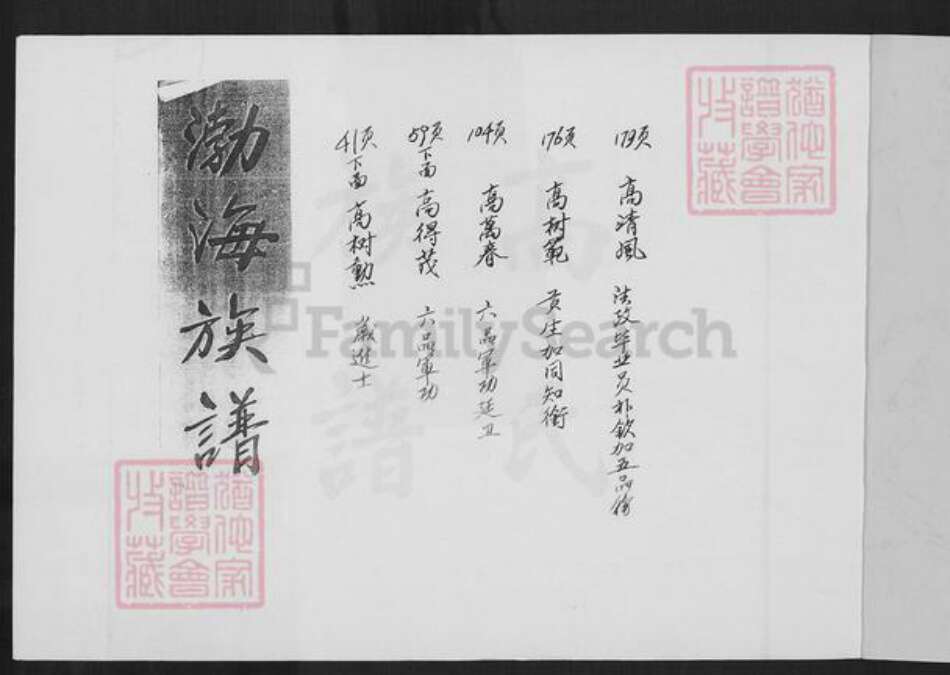 173页 高清風 法政毕业员朴欽加五品銜
176页 高树範 貢生加同知銜
104页 高萬春 六品軍功
59页下面 高得茂 六品軍功
41页下面 高树勲 歲進士
渤海族譜
猶他家
譜學會
收藏
猶他家
譜學會
收藏
FamilySearch
高氏
族譜